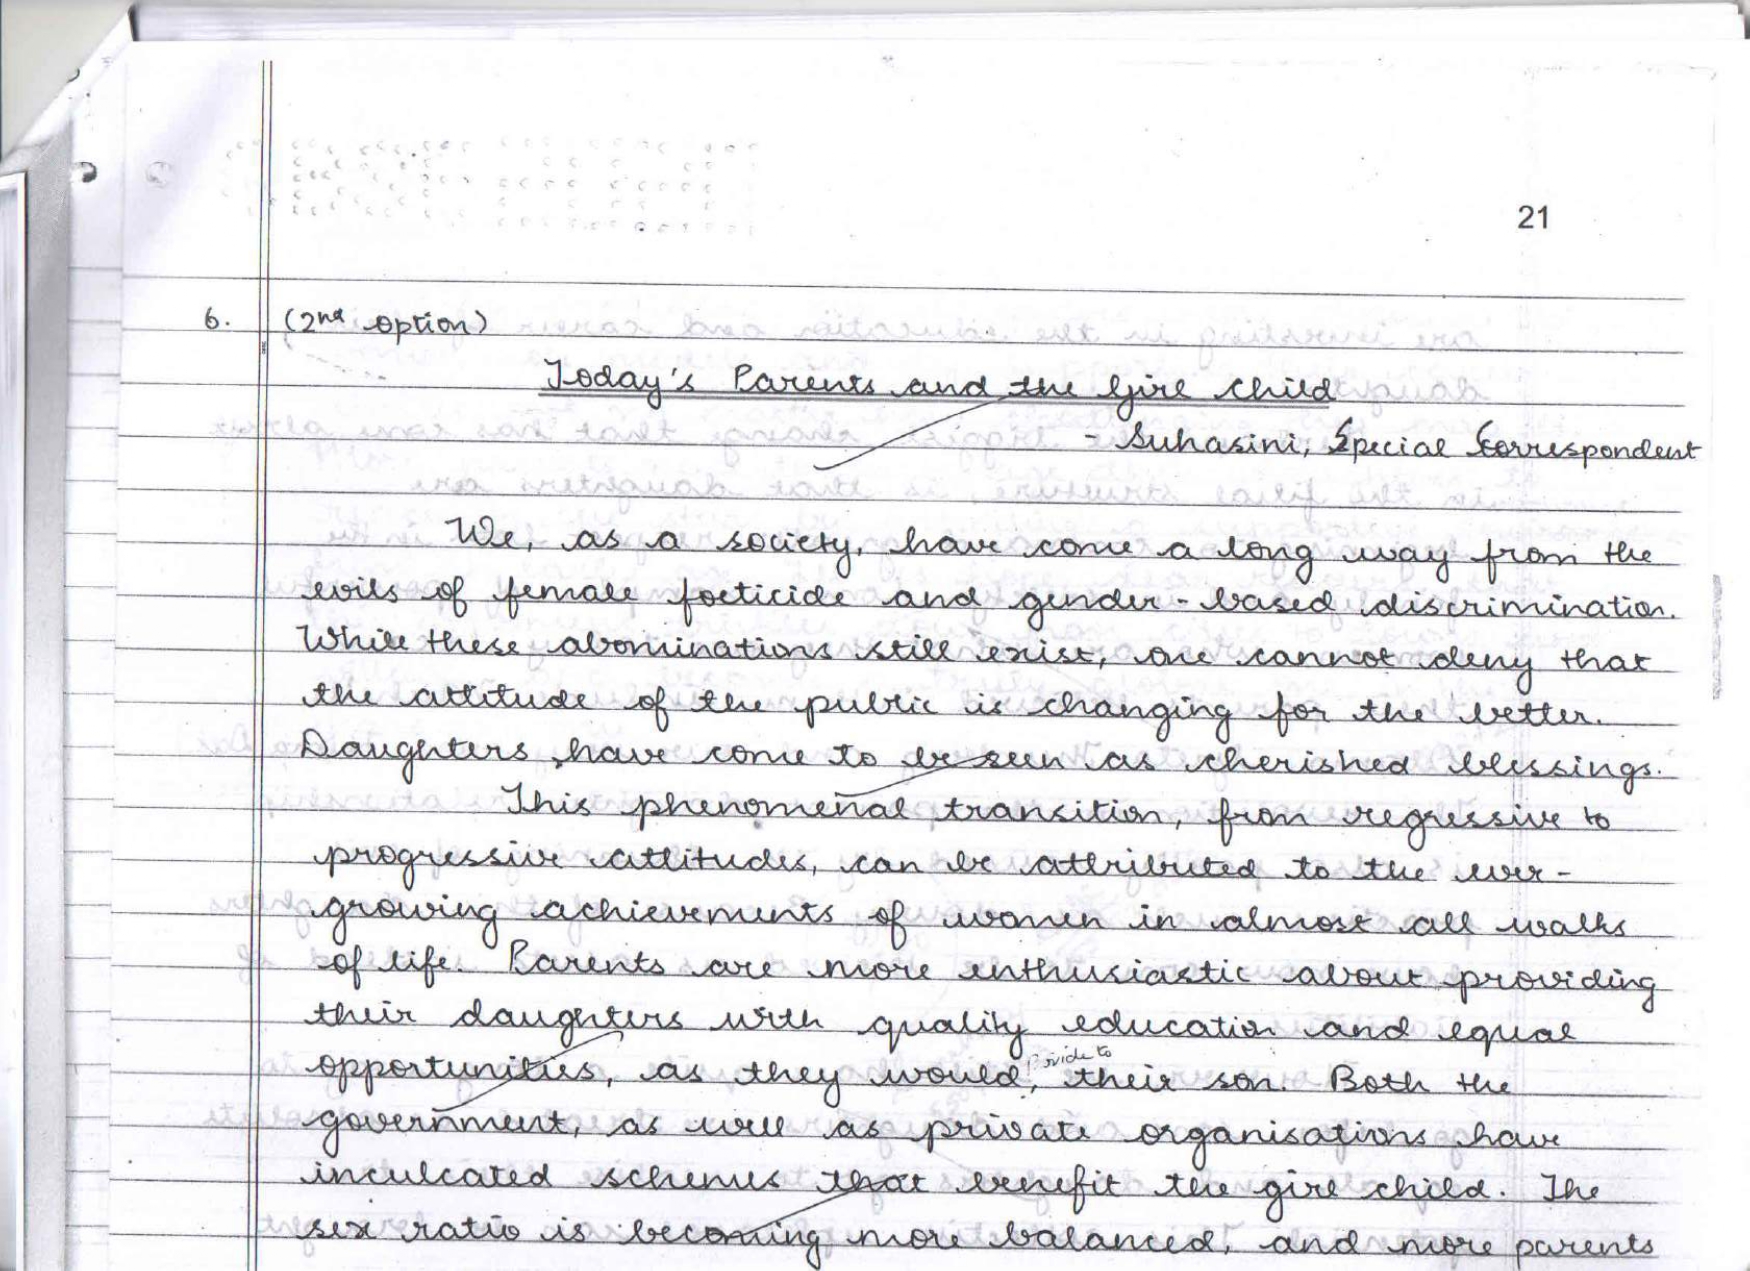 21
6. (2nd option)
Today's Parents and the Girl Child
- Suhasini, Special Correspondent
We, as a society, have come a long way from the
evils of female foeticide and gender-based discrimination.
While these abominations still exist, one cannot deny that
the attitude of the public is changing for the better.
Daughters have come to be seen as cherished blessings.
This phenomenal transition, from regressive to
progressive attitudes, can be attributed to the ever-
growing achievements of women in almost all walks
of life. Parents are more enthusiastic about providing
their daughters with quality education and equal
provide to
opportunities, as they would, their son. Both the
government, as well as private organisations have
inculcated schemes that benefit the girl child. The
sex ratio is becoming more balanced, and more parents